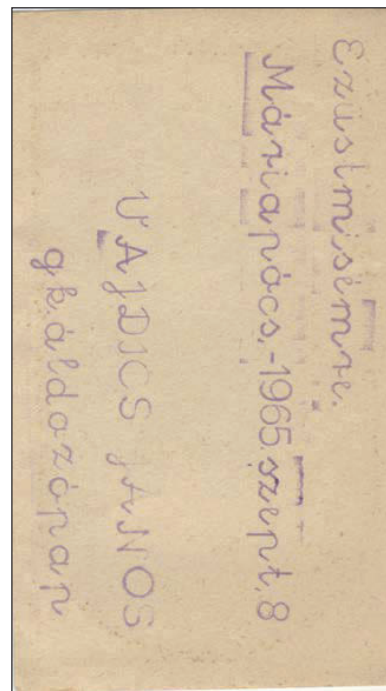 Ezüstmisémre.
Máriapócs,-1965.szept.8
VAJDICS JÁNOS
gk.áldozópap